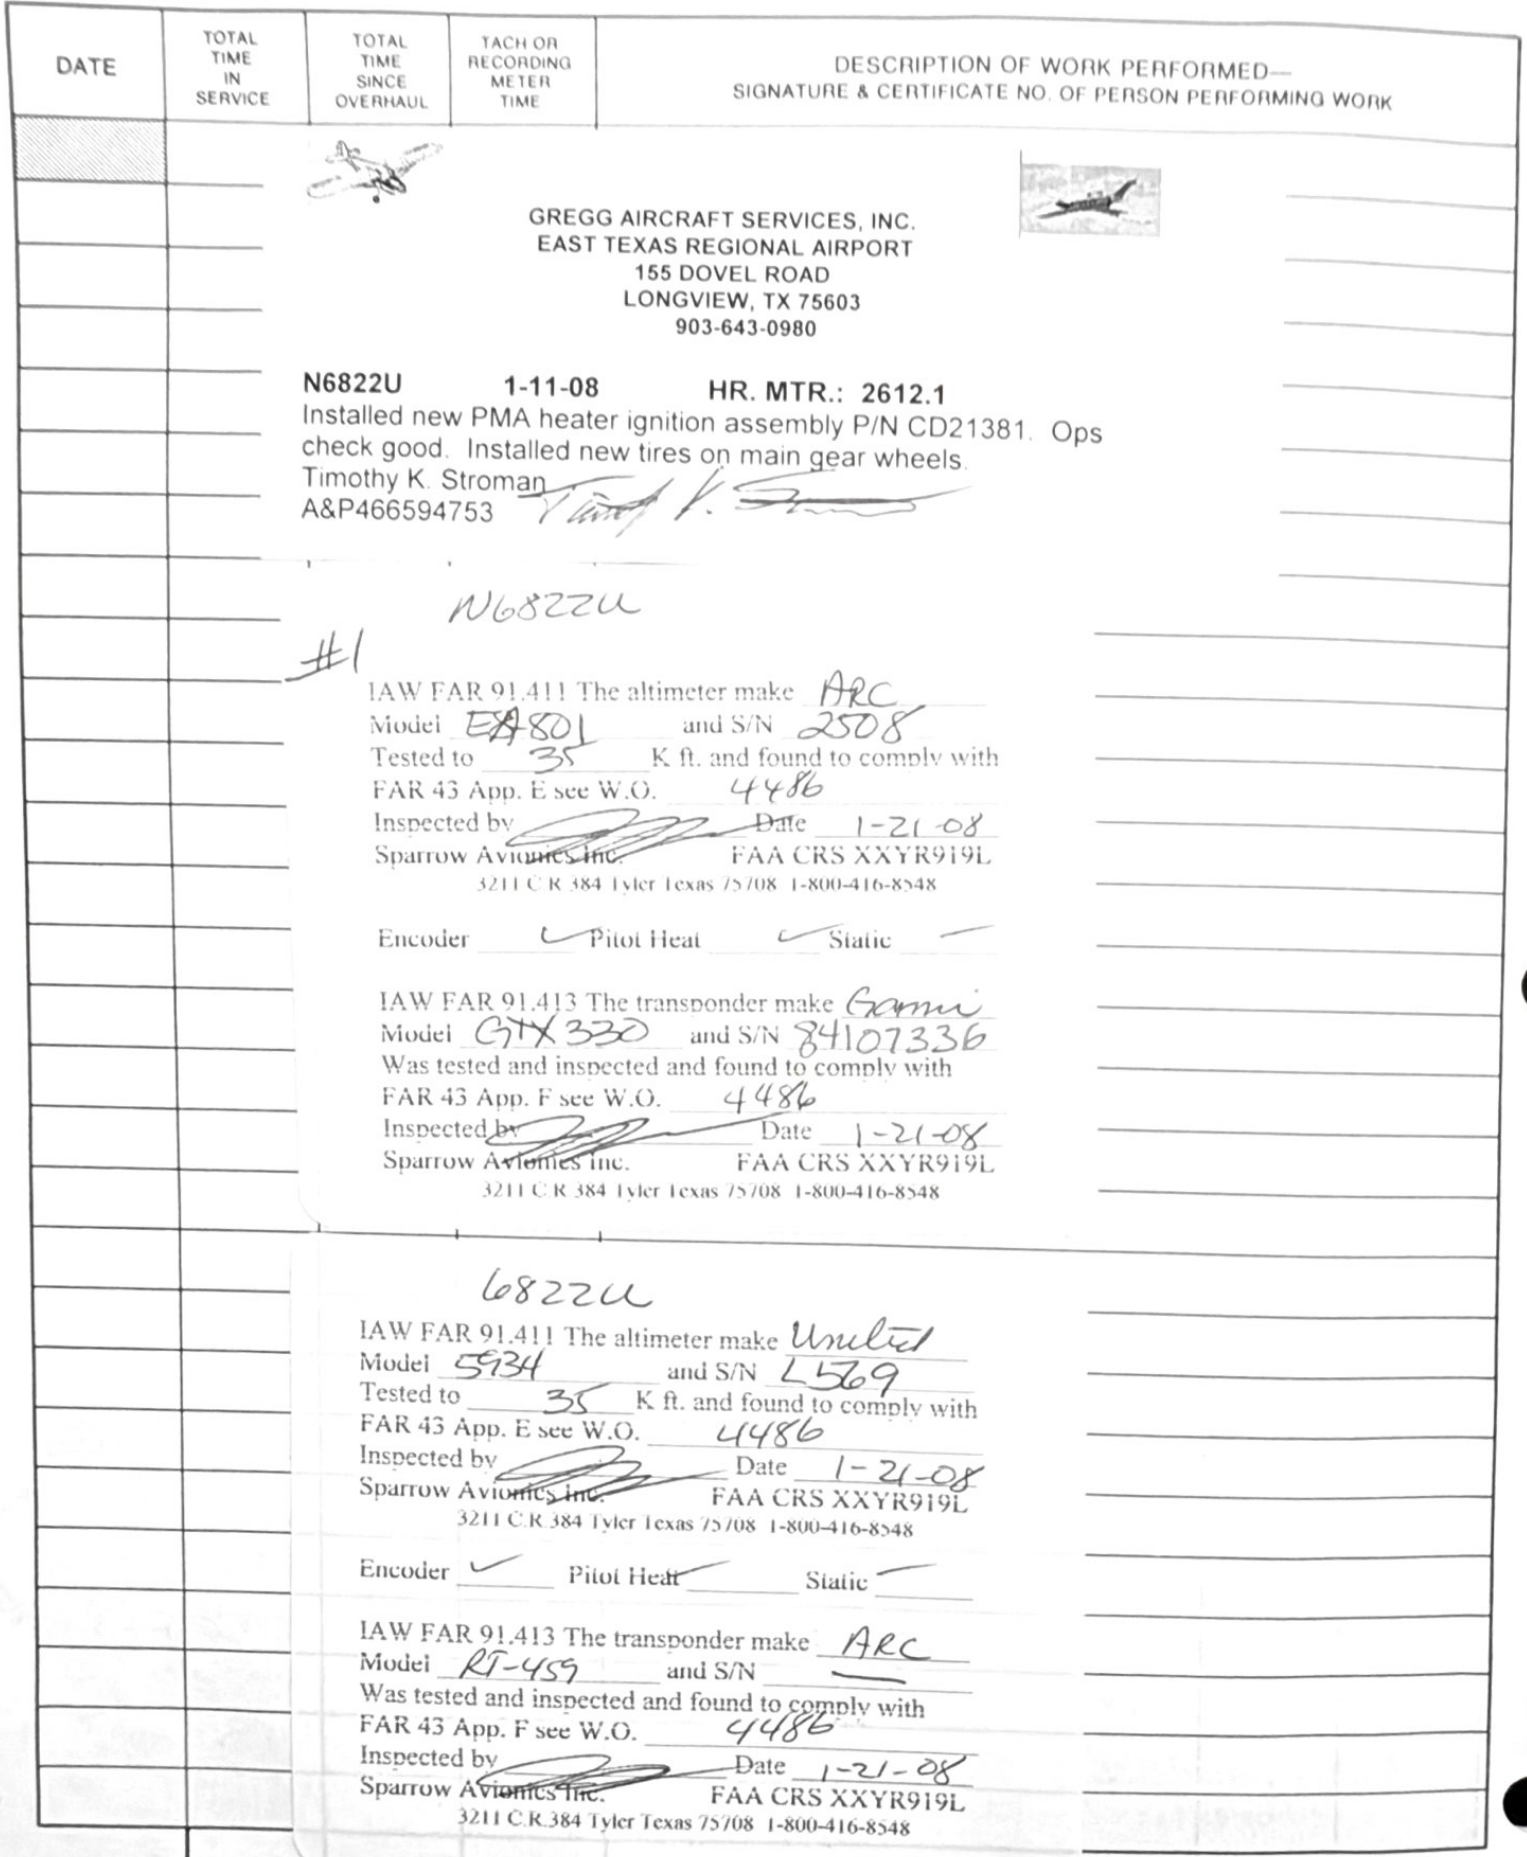 DATE
TOTAL TIME IN SERVICE
TOTAL TIME SINCE OVERHAUL
TACH OR RECORDING METER TIME
DESCRIPTION OF WORK PERFORMED—
SIGNATURE & CERTIFICATE NO. OF PERSON PERFORMING WORK
GREGG AIRCRAFT SERVICES, INC.
EAST TEXAS REGIONAL AIRPORT
155 DOVEL ROAD
LONGVIEW, TX 75603
903-643-0980
N6822U 1-11-08 HR. MTR.: 2612.1
Installed new PMA heater ignition assembly P/N CD21381. Ops
check good. Installed new tires on main gear wheels.
Timothy K. Stroman
A&P466594753
N6822U
#1
IAW FAR 91.411 The altimeter make ARC
Model EA801 and S/N 2508
Tested to 35 K ft. and found to comply with
FAR 43 App. E see W.O. 4486
Inspected by Date 1-21-08
Sparrow Avionics Inc. FAA CRS XXYR919L
3211 C.R 384 Tyler Texas 75708 1-800-416-8548
Encoder ✓ Pitot Heat ✓ Static —
IAW FAR 91.413 The transponder make Garmin
Model GTX 330 and S/N 84107336
Was tested and inspected and found to comply with
FAR 43 App. F see W.O. 4486
Inspected by Date 1-21-08
Sparrow Avionics Inc. FAA CRS XXYR919L
3211 C.R 384 Tyler Texas 75708 1-800-416-8548
6822U
IAW FAR 91.411 The altimeter make United
Model 5934 and S/N L569
Tested to 35 K ft. and found to comply with
FAR 43 App. E see W.O. 4486
Inspected by Date 1-21-08
Sparrow Avionics Inc. FAA CRS XXYR919L
3211 C.R 384 Tyler Texas 75708 1-800-416-8548
Encoder ✓ Pitot Heat — Static —
IAW FAR 91.413 The transponder make ARC
Model RT-459 and S/N —
Was tested and inspected and found to comply with
FAR 43 App. F see W.O. 4486
Inspected by Date 1-21-08
Sparrow Avionics Inc. FAA CRS XXYR919L
3211 C.R.384 Tyler Texas 75708 1-800-416-8548